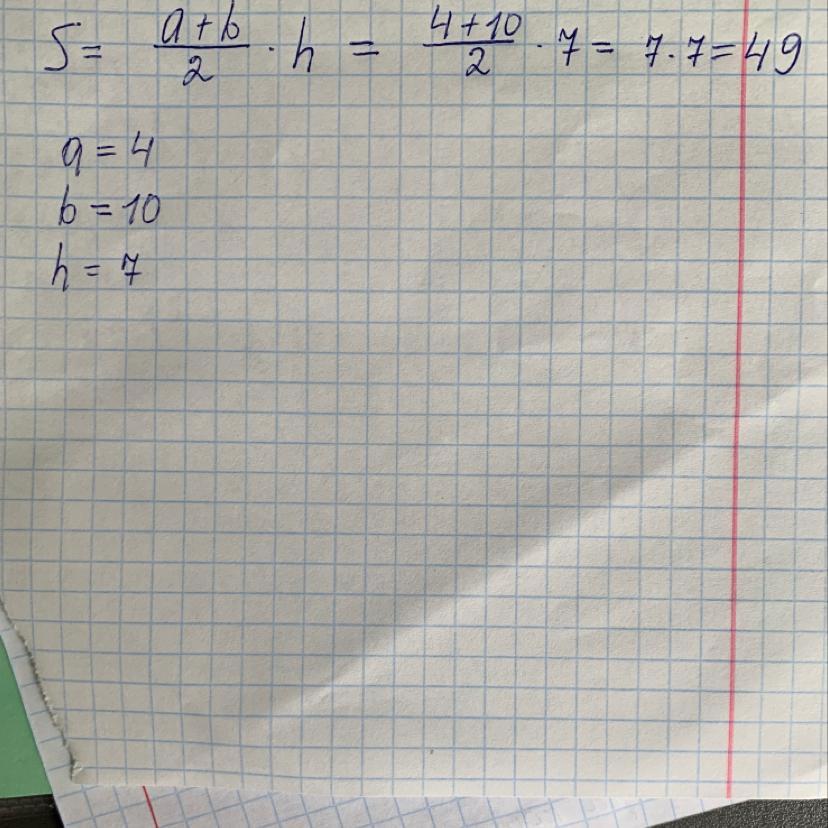 S = \frac{a+b}{2} · h = \frac{4+10}{2} · 7 = 7 · 7 = 49
a = 4
b = 10
h = 7